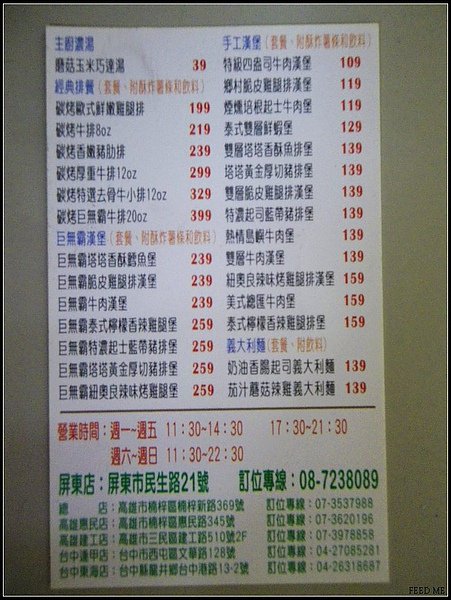 主廚濃湯
蘑菇玉米巧達湯 39
經典排餐(套餐、附酥炸薯條和飲料)
碳烤歐式鮮嫩雞腿排 199
碳烤牛排8oz 219
碳烤香嫩豬肋排 239
碳烤厚重牛排12oz 299
碳烤特選去骨牛小排12oz 329
碳烤巨無霸牛排20oz 399
巨無霸漢堡(套餐、附酥炸薯條和飲料)
巨無霸塔塔香酥鱈魚堡 239
巨無霸脆皮雞腿排漢堡 239
巨無霸牛肉漢堡 239
巨無霸泰式檸檬香辣雞腿堡 259
巨無霸特濃起士藍帶豬排堡 259
巨無霸塔塔黃金厚切豬排堡 259
巨無霸紐奧良辣味烤雞腿堡 259
手工漢堡(套餐、附酥炸薯條和飲料)
特級四盎司牛肉漢堡 109
鄉村脆皮雞腿排漢堡 119
煙燻培根起士牛肉堡 119
泰式雙層鮮蝦堡 129
雙層塔塔香酥魚排堡 139
塔塔黃金厚切豬排堡 139
雙層脆皮雞腿排漢堡 139
特濃起司藍帶豬排堡 139
熱情島嶼牛肉堡 139
雙層牛肉漢堡 139
紐奧良辣味烤雞腿排漢堡 159
美式總匯牛肉堡 159
泰式檸檬香辣雞腿堡 159
義大利麵(套餐、附飲料)
奶油香腸起司義大利麵 139
茄汁蘑菇辣雞義大利麵 139
營業時間：週一~週五 11:30~14:30 17:30~21:30
週六~週日 11:30~22:30
屏東店：屏東市民生路21號 訂位專線：08-7238089
總店：高雄市楠梓區楠梓新路369號 訂位專線：07-3537988
高雄惠民店：高雄市楠梓區惠民路345號 訂位專線：07-3620196
高雄建工店：高雄市三民區建工路510號2F 訂位專線：07-3978858
台中逢甲店：台中市西屯區文華路128號 訂位專線：04-27085281
台中東海店：台中縣龍井鄉台中港路13-2號 訂位專線：04-26318687
FEED ME